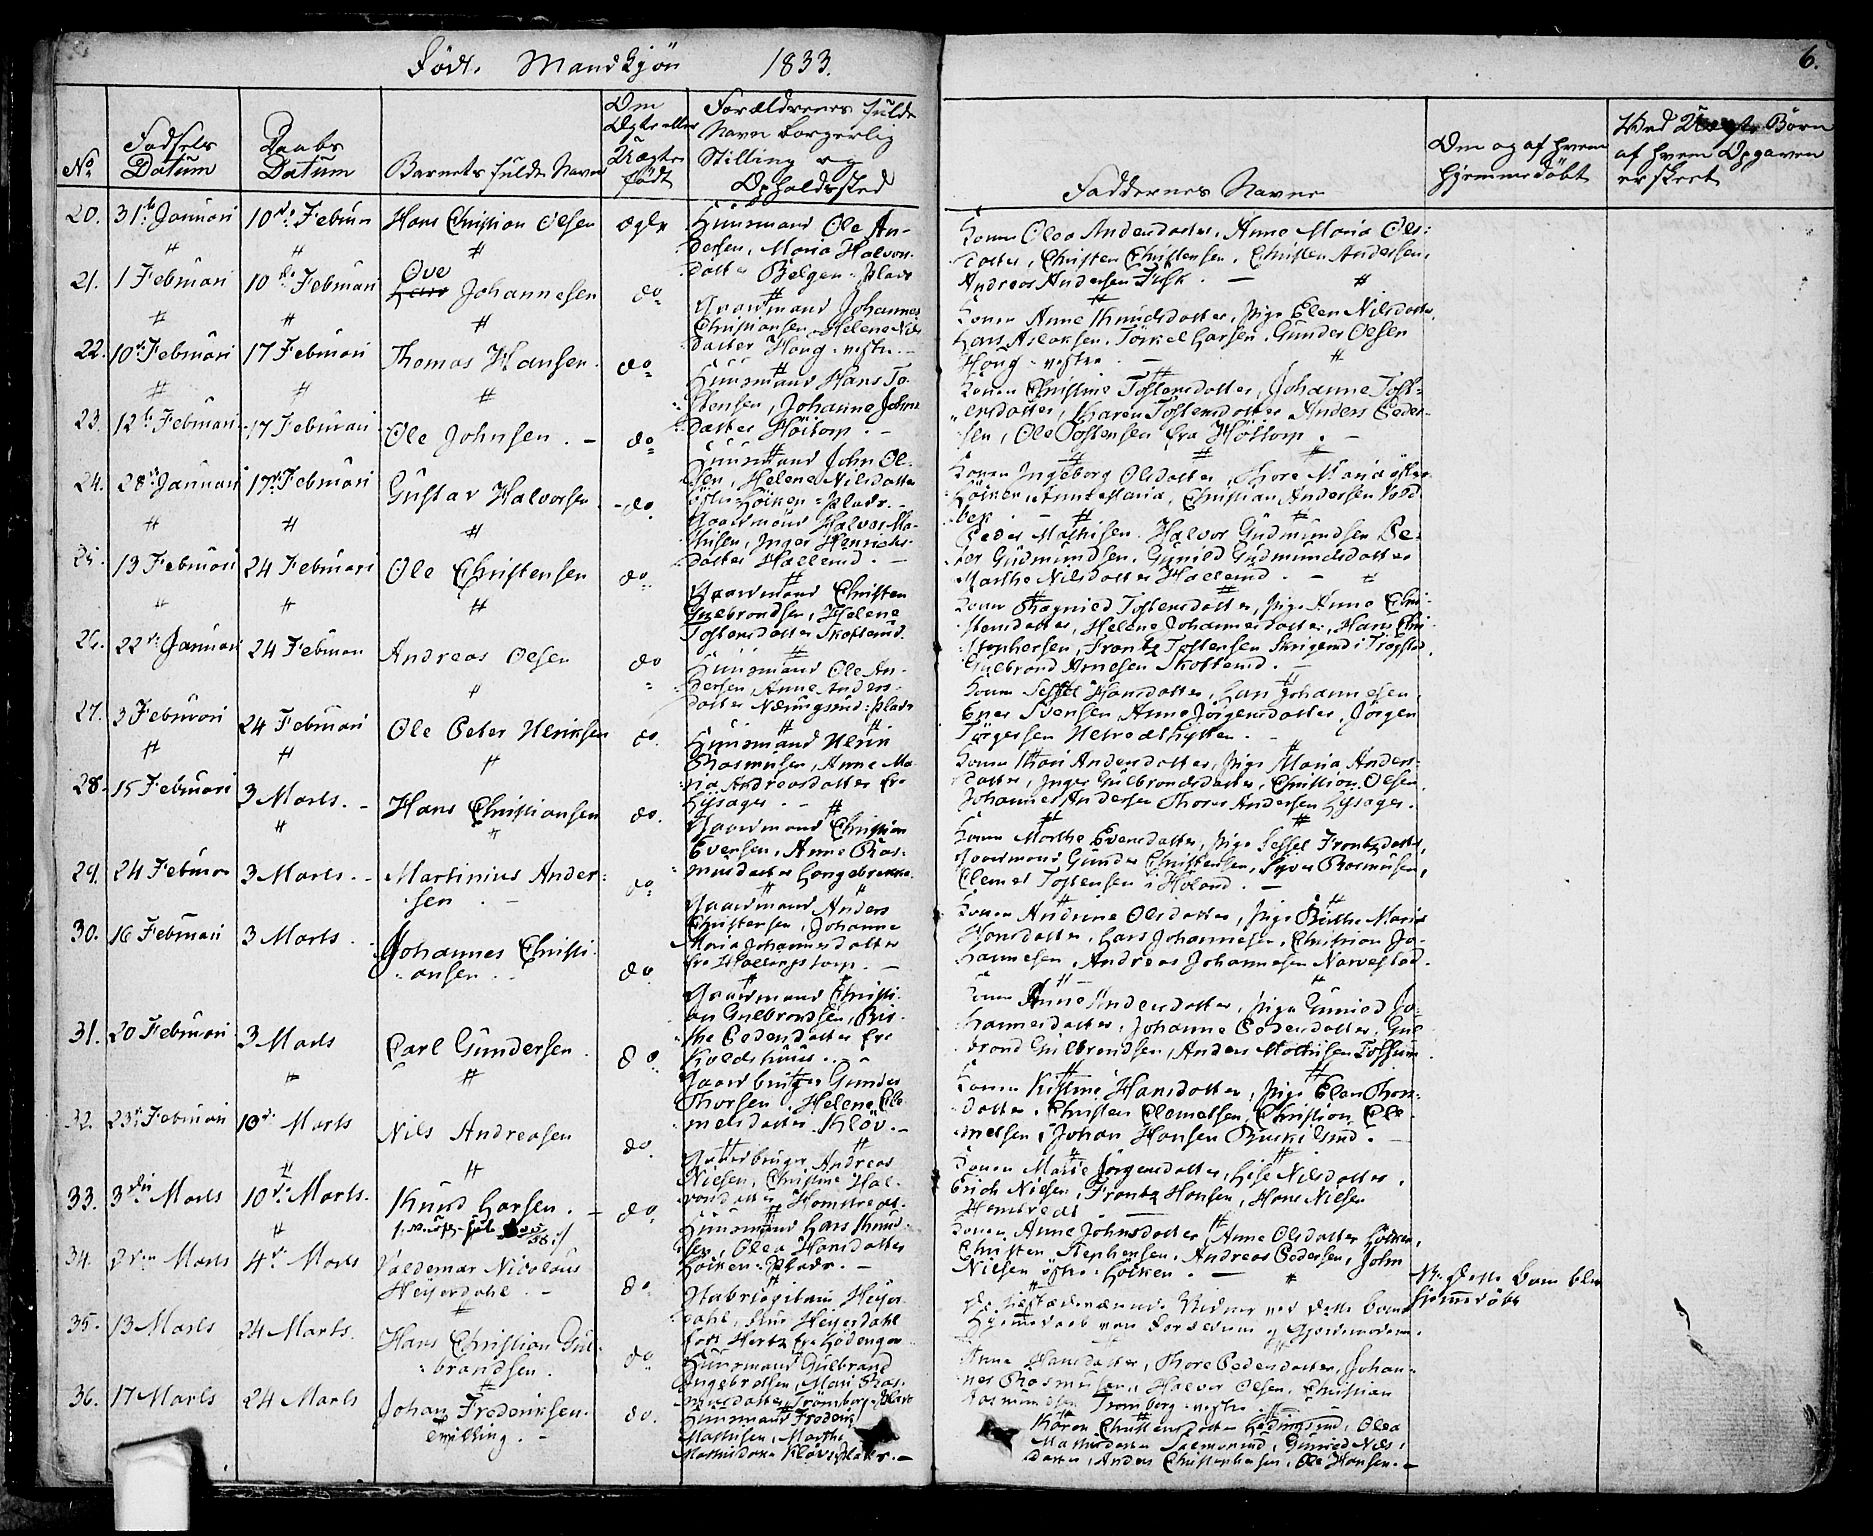 Födt. Mandkjön 1833.
6.
No.
Fødsels Datum
Daabs Datum
Barnets fulde Navn
Om Ægte eller Uægte født
Forældrenes fulde Navn borgerlig Stilling og Opholdssted
Faddernes Navne
Om og af hvem hjemmedøbt
Ved Uægte Børn af hvem Opgaven er skeet
20. 31te Januari 10de Februari Hans Christian Olsen ægte
Huusmand Ole An-
dersen, Maria Halvors-
datter Belgen-Plads
Konen Olea Andersdatter, Anne Maria Ols-
datter, Christen Christensen, Christen Andersen,
Andreas Andersen Fusk. —
21. 1 Februari 10de Februari Ove Lars Johannesen do
Gaardmand Johannes
Christiansen, Helene Nils
datter Houg vestre. —
Konen Anne Knudsdatter, Pige Elen Nilsdatter,
Lars Aslaksen, Torkel Larsen, Gunder Olsen
Houg vestre. —
22. 10de Februari 17 Februari Thomas Hansen. do
Huusmand Hans To-
stensen, Johanne Johns
datter Höitorp. —
Konen Christine Tostensdatter, Johanne Tost-
ensdatter, Karen Tostensdatter, Anders Peder-
sen, Ole Tostensen fra Höitorp. —
23. 12te Februari 17 Februari Ole Johnsen. — do
Huusmand John Ol-
sen, Helene Nilsdatter
östre Höiken-Plads. —
Konen Ingeborg Olsdatter, Thore Maria östre
Höiken, Anne Maria, Christian Andersen
24. 28de Januari 17de Februari Gustav Halvorsen do
Gaardmand Halvor Ma-
thisen, Inger Henrichs-
datter Hallerud. —
Peder Mathisen, Halvor Gudmundsen, Pe-
der Gudmundsen, Gunild Gudmundsdatter
Marthe Nilsdatter Hallerud. —
25. 13 Februari 24 Februari Ole Christensen do
Gaardmand Christen
Gulbrandsen, Helene
Tostensdatter Skofterud.
Konen Ragnild Tostensdatter, Pige Anne Chri-
stensdatter, Helene Johannesdatter, Hans Chri-
stophersen, Frantz Tostensen Skrigerud i Trøgstad,
Gulbrand Arnesen Skofterud. —
26. 22de Januari 24 Februari Andreas Olsen do
Huusmand Ole An-
dersen, Anne Anders-
datter Næringsrud-Plads
Konen Sessel Hansdatter, Lars Johannesen,
Ener Svensen, Anne Jörgensdatter, Jörgen
Törgersen
27. 3 Februari 24 Februari Ole Peter Henriksen do.
Huusmand Henrik
Rasmusen, Anne Ma-
ria Andreasdatter fra
Lysager. —
Konen Kari Andersdatter, Pige Maria Anders-
datter, Inger Gulbrandsdatter, Christian Olsen,
Johannes Andersen, Thorer Andersen Lysager.
28. 15 Februari 3 Marts. — Hans Christiansen do.
Gaardmand Christian
Evensen, Anne Ras-
musdatter Langebrekke.
Konen Marthe Evensdatter, Pige Sessel Frantzdatter,
Gaardmand Gunder Christensen, Syver Rasmusen,
Clemet Tostensen i Höland. —
29. 24 Februar 3 Marts. — Martinius Ander-
sen — do
Gaardmand Anders
Christensen, Johanne
Maria Johannesdatter
fra Hallengstorp. —
Konen Andrine Olsdatter, Pige Birthe Maria
Hansdatter, Lars Johannesen, Christian Jo-
hannesen, Andreas Johannesen Narvestad.
30. 16 Februari 3 Marts. Johannes Christi-
ansen. — do
Gaardmand Christi-
an Gulbrandsen, Bir-
the Pedersdatter fra
Koldshuus. —
Konen Anne Andersdatter, Pige Gunild Jo-
hannesdatter, Johanne Pedersdatter, Gul-
brand Gulbrandsen, Anders Mathisen Tossum.
31. 20 Februari 3 Marts Carl Gundersen. do.
Gaardbruger Gunder
Thorsen, Helene Cle-
metsdatter Klöv. —
Konen Kistine Hansdatter, Pige Elen Thors-
datter, Christen Clemetsen, Christian Cle-
metsen, Johan Hansen
32. 23de Februari 10de Marts Nils Andreasen do.
Gaardbruger Andreas
Nilsen, Christine Hal-
vorsdatter Homstvedt.
Konen Marie Jörgensdatter, Lise Nilsdatter,
Erich Nilsen, Frantz Hansen, Hans Nilsen
Homstvedt
33. 3die Marts 10de Marts. Knud Larsen. — do
Huusmand Lars Knud-
sen, Olea Hansdatter
Höiken-Plads. —
Konen Anne Johnsdatter, Anne Olsdatter Höiken,
Christen Stephensen, Andreas Pedersen, John
Nilsen östre Höiken. —
34. 2den Marts 4de Marts Valdemar Nicolaus
Heyerdahl. — do
Capitain Heyer-
dahl, Frue Heyerdahl
født Hertz fra
NB. Dette Barn blev
hjemmedøbt
35. 13 Marts 24 Marts. Hans Christian Gul-
brandsen. do
Huusmand Gulbrand
Ingebretsen, Mari Ras-
musdatter Trömborg-Plads
Anne Hansdatter, Thore Pedersdatter, Johan-
nes Rasmusen, Halvor Olsen, Christian
Rasmundsen Tromborg vestre.
36. 17 Marts 24 Marts Johan Frederiksen.
Tvilling. — do.
Huusmand Frederik
Mathisen, Marthe
Mathisdatter Klövs Plads. —
Karen Christensdatter, Olea
Mathisdatter, Gunild Nils-
datter, Anders Christophersen, Ole Hansen. —